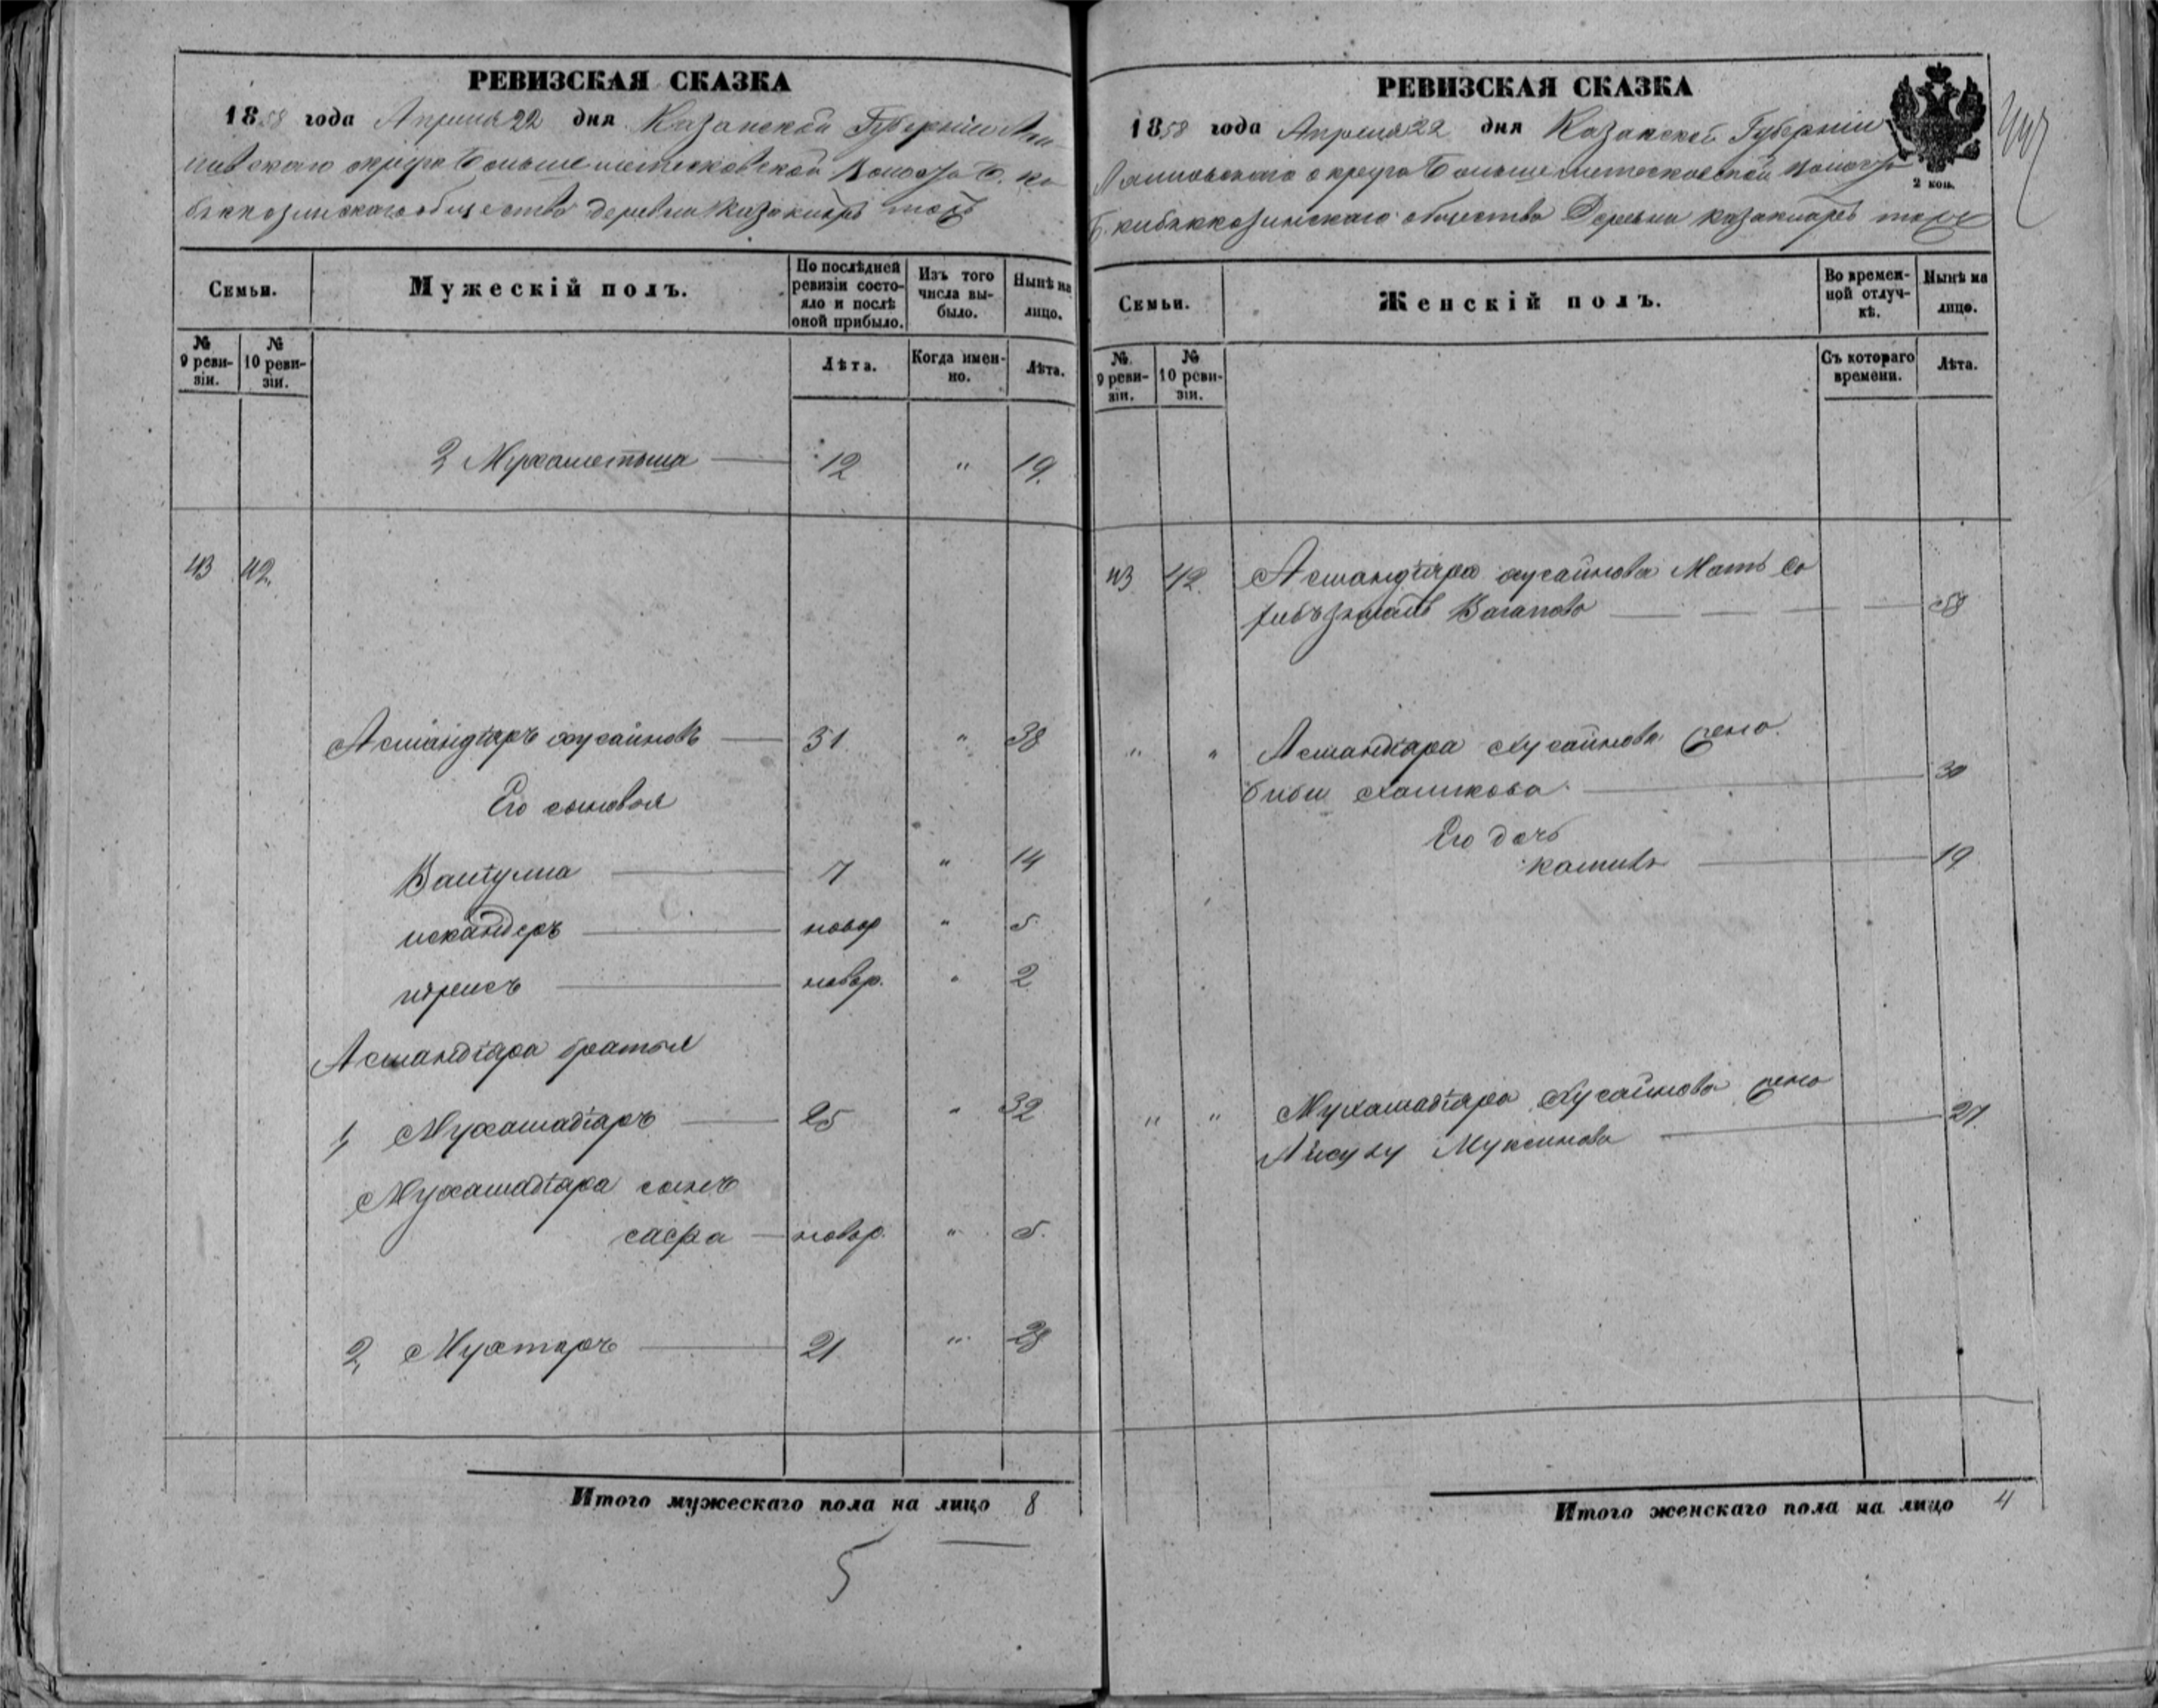 РЕВИЗСКАЯ СКАЗКА
1858 года Апреля 22 дня Казанской Губерніи Лаи
шевского округа Большеметесковской Волости Б. Ки
бяккозинскаго общества деревни Казаклярь
Семьи.
Мужескій полъ.
По послѣдней ревизіи состояло и послѣ оной прибыло.
Изъ того числа выбыло.
Нынѣ на лицо.
№ 9 ревизіи.
№ 10 ревизіи.
Лѣта.
Когда именно.
Лѣта.
2 Мухаметша 12 " 19.
43 42.
Асмандіяръ хусаиновъ 31 " 38
Его сыновья
Вашулла 7 " 14
искандеръ новор " 5
новор. " 2
Асмандіяра братья
1, Мухамадіаръ 25 " 32
Мухамадіара сынъ
сафа новор. " 5.
2, Мухтаръ 21 " 28
Итого мужескаго пола на лицо 8
5
РЕВИЗСКАЯ СКАЗКА
1858 года Апреля 22 дня Казанской Губерніи
Лаишевскаго округа Большеметесковской волости
Б. кибяккозинскаго общества Деревни казакларь
2 коп.
Семьи.
Женскій полъ.
Во временной отлучкѣ.
Нынѣ на лицо.
№ 9 ревизіи.
№ 10 ревизіи.
Съ котораго времени.
Лѣта.
43 42. Асмандіяра хусаинова Мать
Вагапова 58
" " Асмандіара Хусаинова жена
биби 30
Его дочь
19
" " Мухамадіяра Хусаинова жена
Айсулу Муксинова 27.
Итого женскаго пола на лицо 4